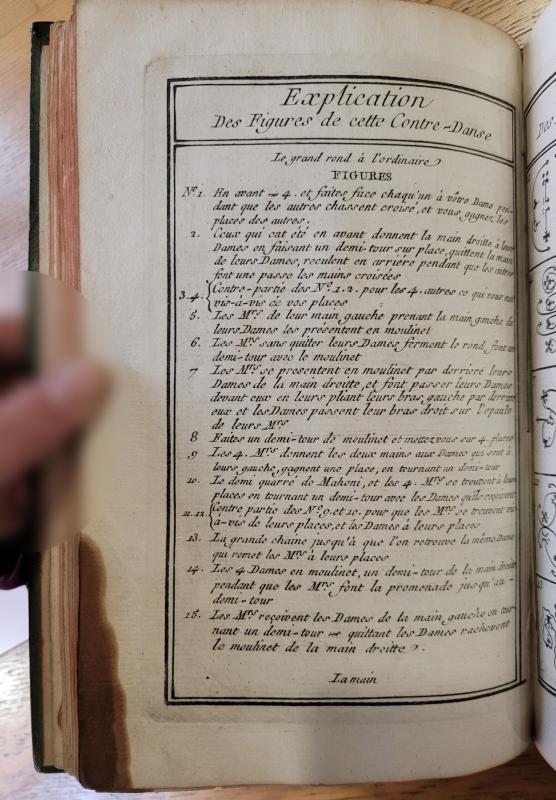 Explication
Des Figures de cette Contre-Danse
Le grand rond à l'ordinaire
FIGURES
Nº 1. En avant 4. et faites face chaqu'un à vôtre Dame pen-
dant que les autres chassent croisé, et vous gagnez les
places des autres.
2. Ceux qui ont été en avant donnent la main droitte à leurs
Dames en faisant un demi-tour sur place, quittent la main
de leurs Dames, reculent en arriére pendant que les autres
font une passe les mains croisées
3.4. Contre-partie des Nº 1.2. pour les 4. autres ce qui vous met
vis-à-vis de vos places
5. Les Mrs de leur main gauche prenant la main gauche de
leurs Dames les présentent en moulinet
6. Les Mrs sans quitter leurs Dames ferment le rond, font un
demi-tour avec le moulinet
7 Les Mrs se presentent en moulinet par derriére leurs
Dames de la main droitte, et font passer leurs Dames
devant eux en leurs pliant leurs bras gauche par derriere
eux et les Dames passent leur bras droit sur l'epaule
de leurs Mrs
8 Faites un demi-tour de moulinet et mettez vous sur 4. places
9 Les 4. Mrs donnent les deux mains aux Dames qui sont à
leurs gauche, gagnent une place, en tournant un demi-tour
10. Le demi quarré de Mahoni, et les 4. Mrs se trouvent à leurs
places en tournant un demi-tour avec les Dames qu'ils reçoivent
11.12. Contre partie des Nº 9. et 10. pour que les Mrs se trouvent vis-
à-vis de leurs places, et les Dames à leurs places
13. La grande chaine jusqu'à que l'on retrouve la même Dame
qui remet les Mrs à leurs places
14. Les 4 Dames en moulinet, un demi-tour de la main droite
pendant que les Mrs font la promenade jusqu'au
demi-tour
15. Les Mrs reçoivent les Dames de la main gauche en tour-
nant un demi-tour quittant les Dames rachevent
le moulinet de la main droitte.
La main
Des